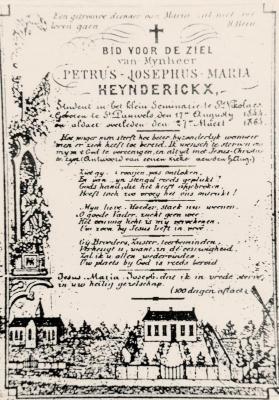 Een getrouwe dienaer van Maria zal niet verloren gaen
BID VOOR DE ZIEL
van Mynheer
PETRUS-JOSEPHUS-MARIA
HEYNDERICKX,
Student in het klein Seminarie te St Nikolaes
Geboren te St Pauwels, den 17en Augusty 1844
en aldaer overleden den 27en Maert 1863
Hoe jonger men sterft hoe beter, byzonderlyk wanneer
men er zich heeft toe bereid. Ik wensch te sterven om
my met God te vereenigen, en altyd met Jesus-Christus
te zyn. (Antwoord van eenen zieken
Zwyg! 't roosjen pas ontloken
En van zyn stengel reeds geplukt?
Gods hand, die het heeft afgebroken,
Heeft zich zoo vroeg
Myn lieve Moeder, staek uw weenen.
O goede Vader, zucht geen wee
Het eeuwig licht is my verschenen,
Gy, Broeders, Zuster, teerbeminden,
Verheugt u, want in dé
Zal ik u allen wedervinden
Uw plaets by God is reeds bereid
Jesus, Maria, Joseph, dat ik in vrede sterve,
in uw heilig gezelschap.
(100 dagen aflaet)